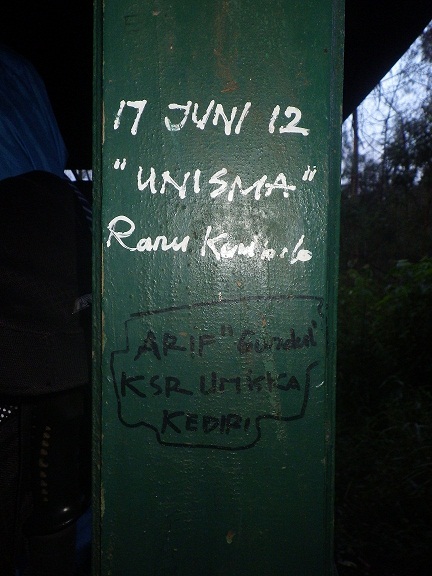 17 JUNI 12
"UNISMA"
Ranu Kumbolo
ARIF "Gundul"
KSR UMISKA
KEDIRI